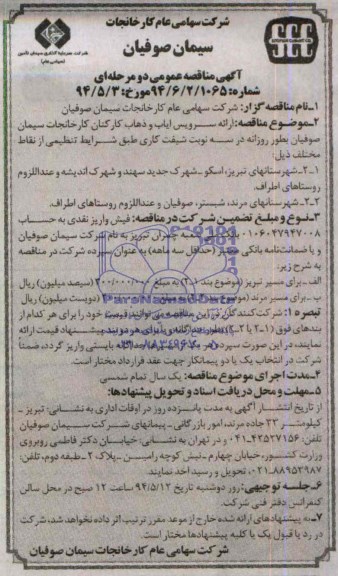 شرکت سهامی عام کارخانجات
سیمان صوفیان
شرکت سرمایه گذاری سیمان تامین
(سهامی عام)
آگهی مناقصه عمومی دو مرحله‌ای
شماره: ۹۴/۶/۲/۱۰۶۵مورخ: ۹۴/۵/۳
۱ـ نام مناقصه گزار: شرکت سهامی عام کارخانجات سیمان صوفیان
۲ـ موضوع مناقصه: ارائه سرویس ایاب و ذهاب کارکنان کارخانجات سیمان
صوفیان بطور روزانه در سه نوبت شیفت کاری طبق شرایط تنظیمی از نقاط
مختلف ذیل:
۲ـ۱ـ شهرستانهای تبریز، اسکو ـ شهرک جدید سهند و شهرک اندیشه و عنداللزوم
روستاهای اطراف.
۲ـ۲ـ شهرستانهای مرند، شبستر، صوفیان و عنداللزوم روستاهای اطراف.
۳ـ نوع و مبلغ تضمین شرکت در مناقصه: فیش واریز نقدی به حساب
۰۱۰۶۰۴۷۹۴۷۰۰۸ بانک ملی شعبه چمران تبریز به نام شرکت سیمان صوفیان
و یا ضمانتنامه بانکی معتبر (حداقل سه ماهه) به عنوان سپرده شرکت در مناقصه
به شرح زیر:
الف ـ برای مسیر تبریز (موضوع بند ۱ـ۲) به مبلغ ۳۰۰/۰۰۰/۰۰۰ (سیصد میلیون) ریال
ب ـ برای مسیر مرند (موضوع (دویست میلیون) ریال
تبصره ۱: شرکت کنندگان در این مناقصه می توانند قیمت خود را برای هر کدام از
بندهای فوق (۱ـ۲ یا ۲ـ۲) بطور جداگانه و یا برای هر دو بند پیشنهاد قیمت ارائه
نمایند، در این صورت سپرده هر بایستی واریز گردد، ضمناً
شرکت در انتخاب یک یا دو پیمانکار جهت عقد قرارداد مختار است.
۴ـ مدت اجرای موضوع مناقصه: یک سال تمام شمسی
۵ـ مهلت و محل دریافت اسناد و تحویل پیشنهادها:
از تاریخ انتشار آگهی به مدت پانزده روز در اوقات اداری به نشانی: تبریز ـ
کیلومتر ۳۳ جاده مرند، امور بازرگانی ـ پیمانهای شرکت سیمان صوفیان
تلفن: ۴۲۵۲۷۱۵۶ـ۰۴۱ و در تهران به نشانی: خیابان دکتر فاطمی روبروی
وزارت کشور، خیابان چهارم ـ نبش کوچه رامین ـ پلاک ۲ ـ طبقه دوم، تلفن:
۸۸۹۵۲۹۸۷ـ۰۲۱ تحویل و رسید اخذ نمایند.
۶ـ جلسه توجیهی: روز دوشنبه تاریخ ۹۴/۵/۱۲ ساعت ۱۲ صبح در محل سالن
کنفرانس دفتر فنی شرکت.
۷ـ به پیشنهادهای ارائه شده خارج از موعد مقرر ترتیب اثر داده نخواهد شد، شرکت
در رد یا قبول یک یا کلیه پیشنهادها مختار است.
شرکت سهامی عام کارخانجات سیمان صوفیان